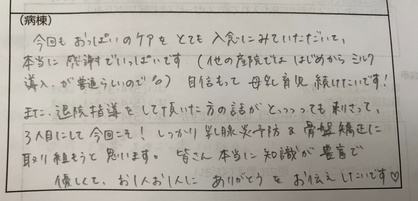 (病棟)
今回もおっぱいのケアをとても入念にみていただいて、
本当に感謝でいっぱいです (他の産院では はじめからミルク
導入が普通らしいので💦) 自信もって母乳育児 続けたいです!
また、退院指導をして頂いた方の話がとっっっても刺さって、
3人目にして今回こそ! しっかり乳腺炎予防 & 骨盤矯正に
取り組もうと思います。 皆さん本当に知識が豊富で
優しくて、お1人お1人に ありがとうを お伝えしたいです♡